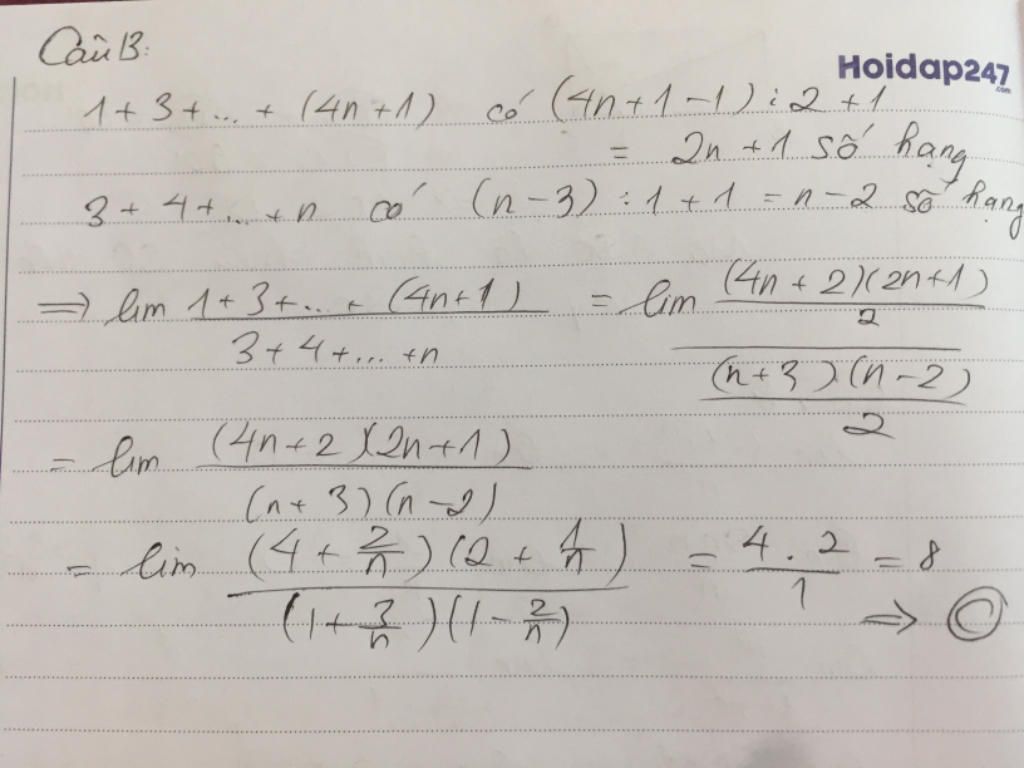 Câu 13:
Hoidap247.com
1+3+... + (4n+1) có (4n+1-1) : 2 +1
= 2n +1 số hạng
3+4+...+n có (n-3) : 1 + 1 = n-2 số hạng
=> lim (1+3+... + (4n+1))/(3+4+... +n) = lim ((4n+2)(2n+1)/2)/((n+3)(n-2)/2)
= lim ((4n+2)(2n+1))/((n+3)(n-2))
= lim ((4 + 2/n)(2 + 1/n))/((1 + 3/n)(1 - 2/n)) = (4.2)/1 = 8
=> Ⓒ